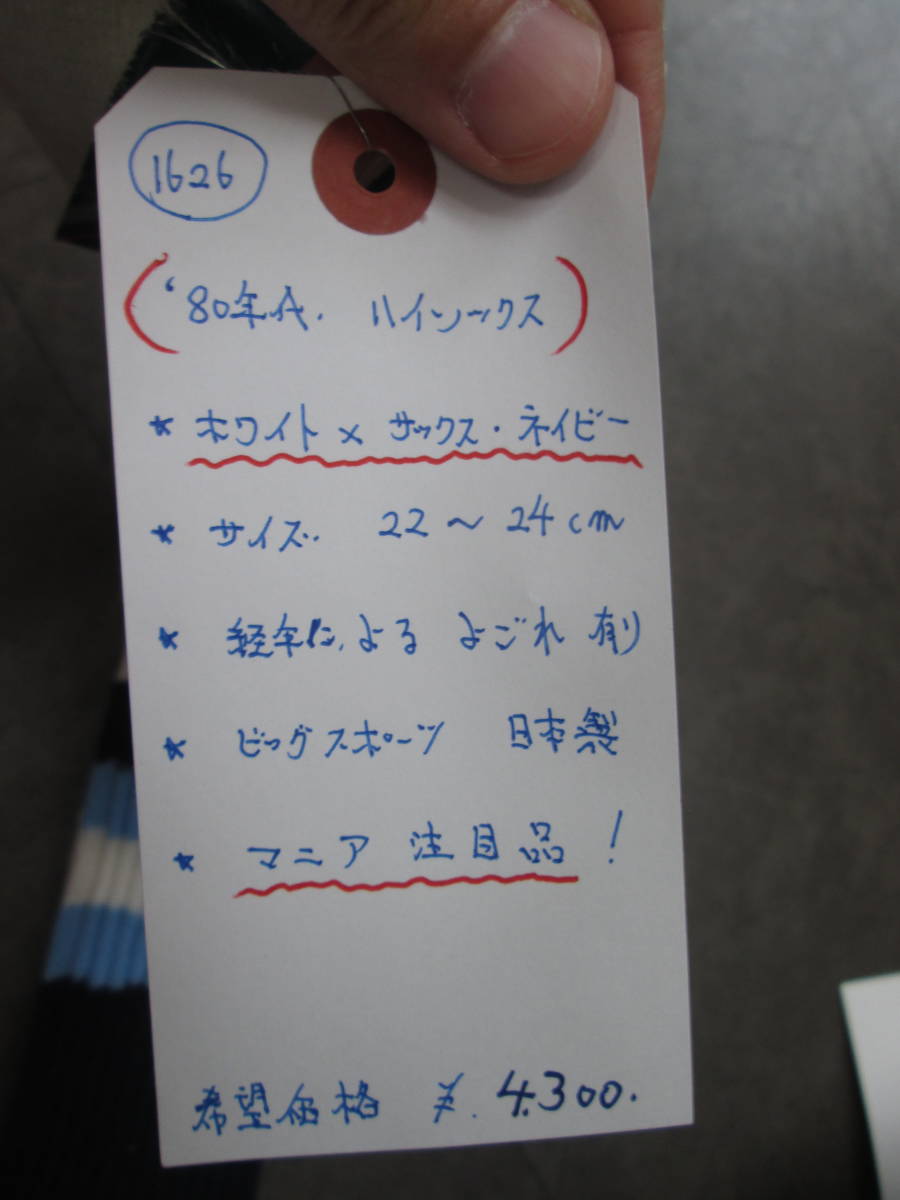 1626
('80年代. ハイソックス)
* ホワイト × サックス・ネイビー
* サイズ. 22 ～ 24cm
* 経年による よごれ 有り
* ビッグスポーツ 日本製
* マニア 注目品!
希望価格 ¥. 4.300.